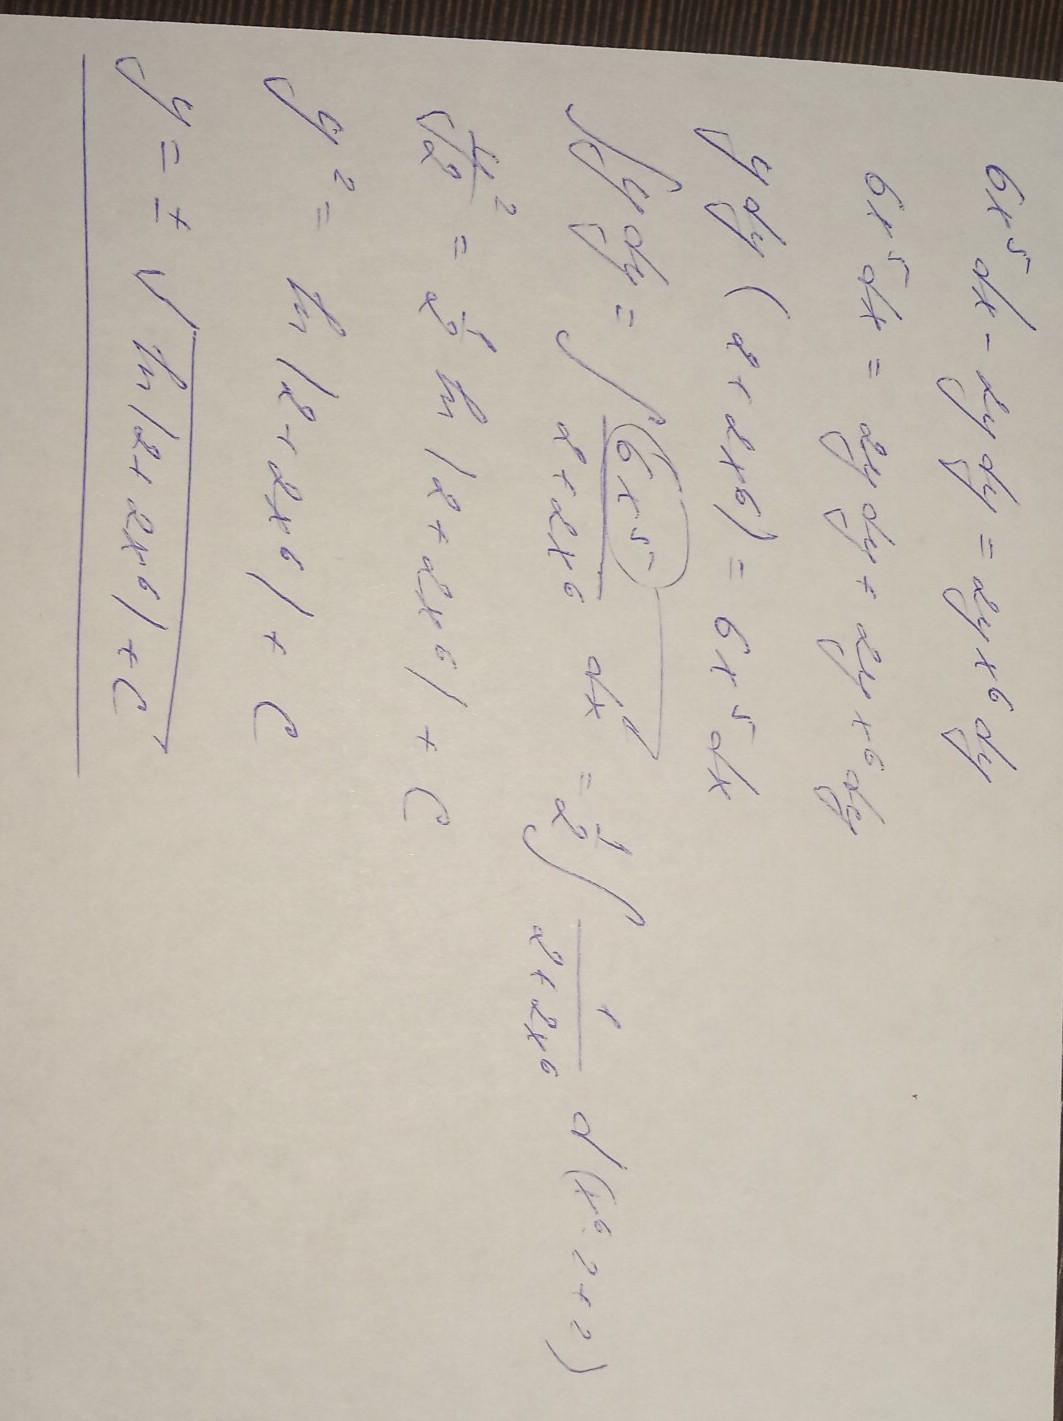 6x⁵dx - 2y dy = 2yx⁶dy
6x⁵dx = 2y dy + 2yx⁶dy
y dy (2 + 2x⁶) = 6x⁵dx
∫y dy = ∫ 6x⁵/(2+2x⁶) dx = 1/2 ∫ 1/(2+2x⁶) d(x⁶·2+2)
y²/2 = 1/2 ln|2+2x⁶| + C
y² = ln|2+2x⁶| + C
y = ± √(ln|2+2x⁶| + C)